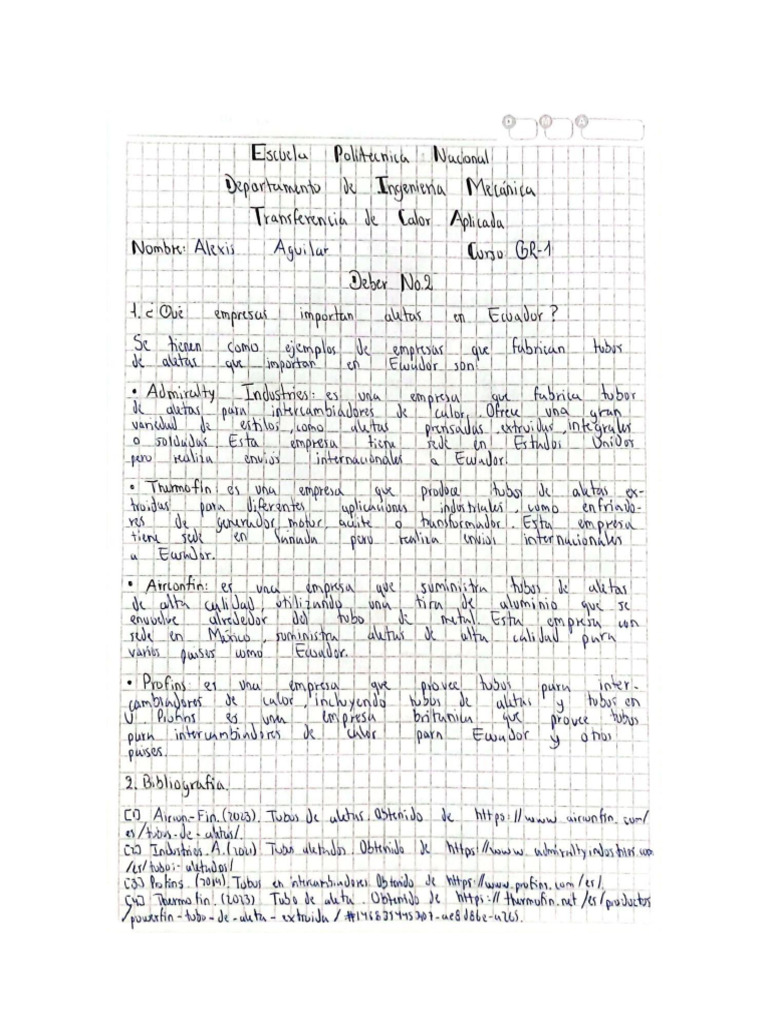 D M A
Escuela Politecnica Nacional
Departamento de Ingenieria Mecánica
Transferencia de Calor Aplicada
Nombre: Alexis Aguilar Curso GR-1
Deber No.2
1. ¿Qué empresas importan aletas en Ecuador?
Se tienen como ejemplos de empresas que fabrican tubos
de aletas que importan en Ecuador son
• Admiralty Industries: es una empresa que fabrica tubos
de aletas para intercambiadores de calor. Ofrece una gran
variedad de estilos, como aletas prensadas, extruidas, integrales
o soldadas. Esta empresa tiene sede en Estados Unidos
pero realiza envios internacionales a Ecuador.
• Thermofin: es una empresa que produce tubos de aletas ex-
truidas para diferentes aplicaciones industriales, como enfriado-
res de generador, motor, aceite o transformador. Esta empresa
tiene sede en Canada pero realiza envios internacionales
a Ecuador.
• Airconfin: es una empresa que suministra tubos de aletas
de alta calidad, utilizando una tira de aluminio que se
envuelve alrededor del tubo de metal. Esta empresa con
sede en México, suministra aletas de alta calidad para
varios paises como Ecuador.
• Profins: es una empresa que provee tubos para inter-
cambiadores de calor, incluyendo tubos de aletas y tubos en
U Profins es una empresa britanica que provee tubos
para intercambiadores de calor para Ecuador y otros
paises.
2. Bibliografia.
[1] Aircon-Fin. (2023). Tubos de aletas. Obtenido de https://www.airconfin.com/
es/tubos-de-aletas/.
[2] Industries. A. Tubos aletados. Obtenido de https://www.admiraltyindustries.com
/es/tubos-aletados/
[3] Profins. (2014). Tubos en intercambiadores. Obtenido de https://www.profins.com/es/.
[4] Thermofin. (2023). Tubo de aleta. Obtenido de https://thermofin.net/es/productos
/powerfin-tubo-de-aleta-extruida/